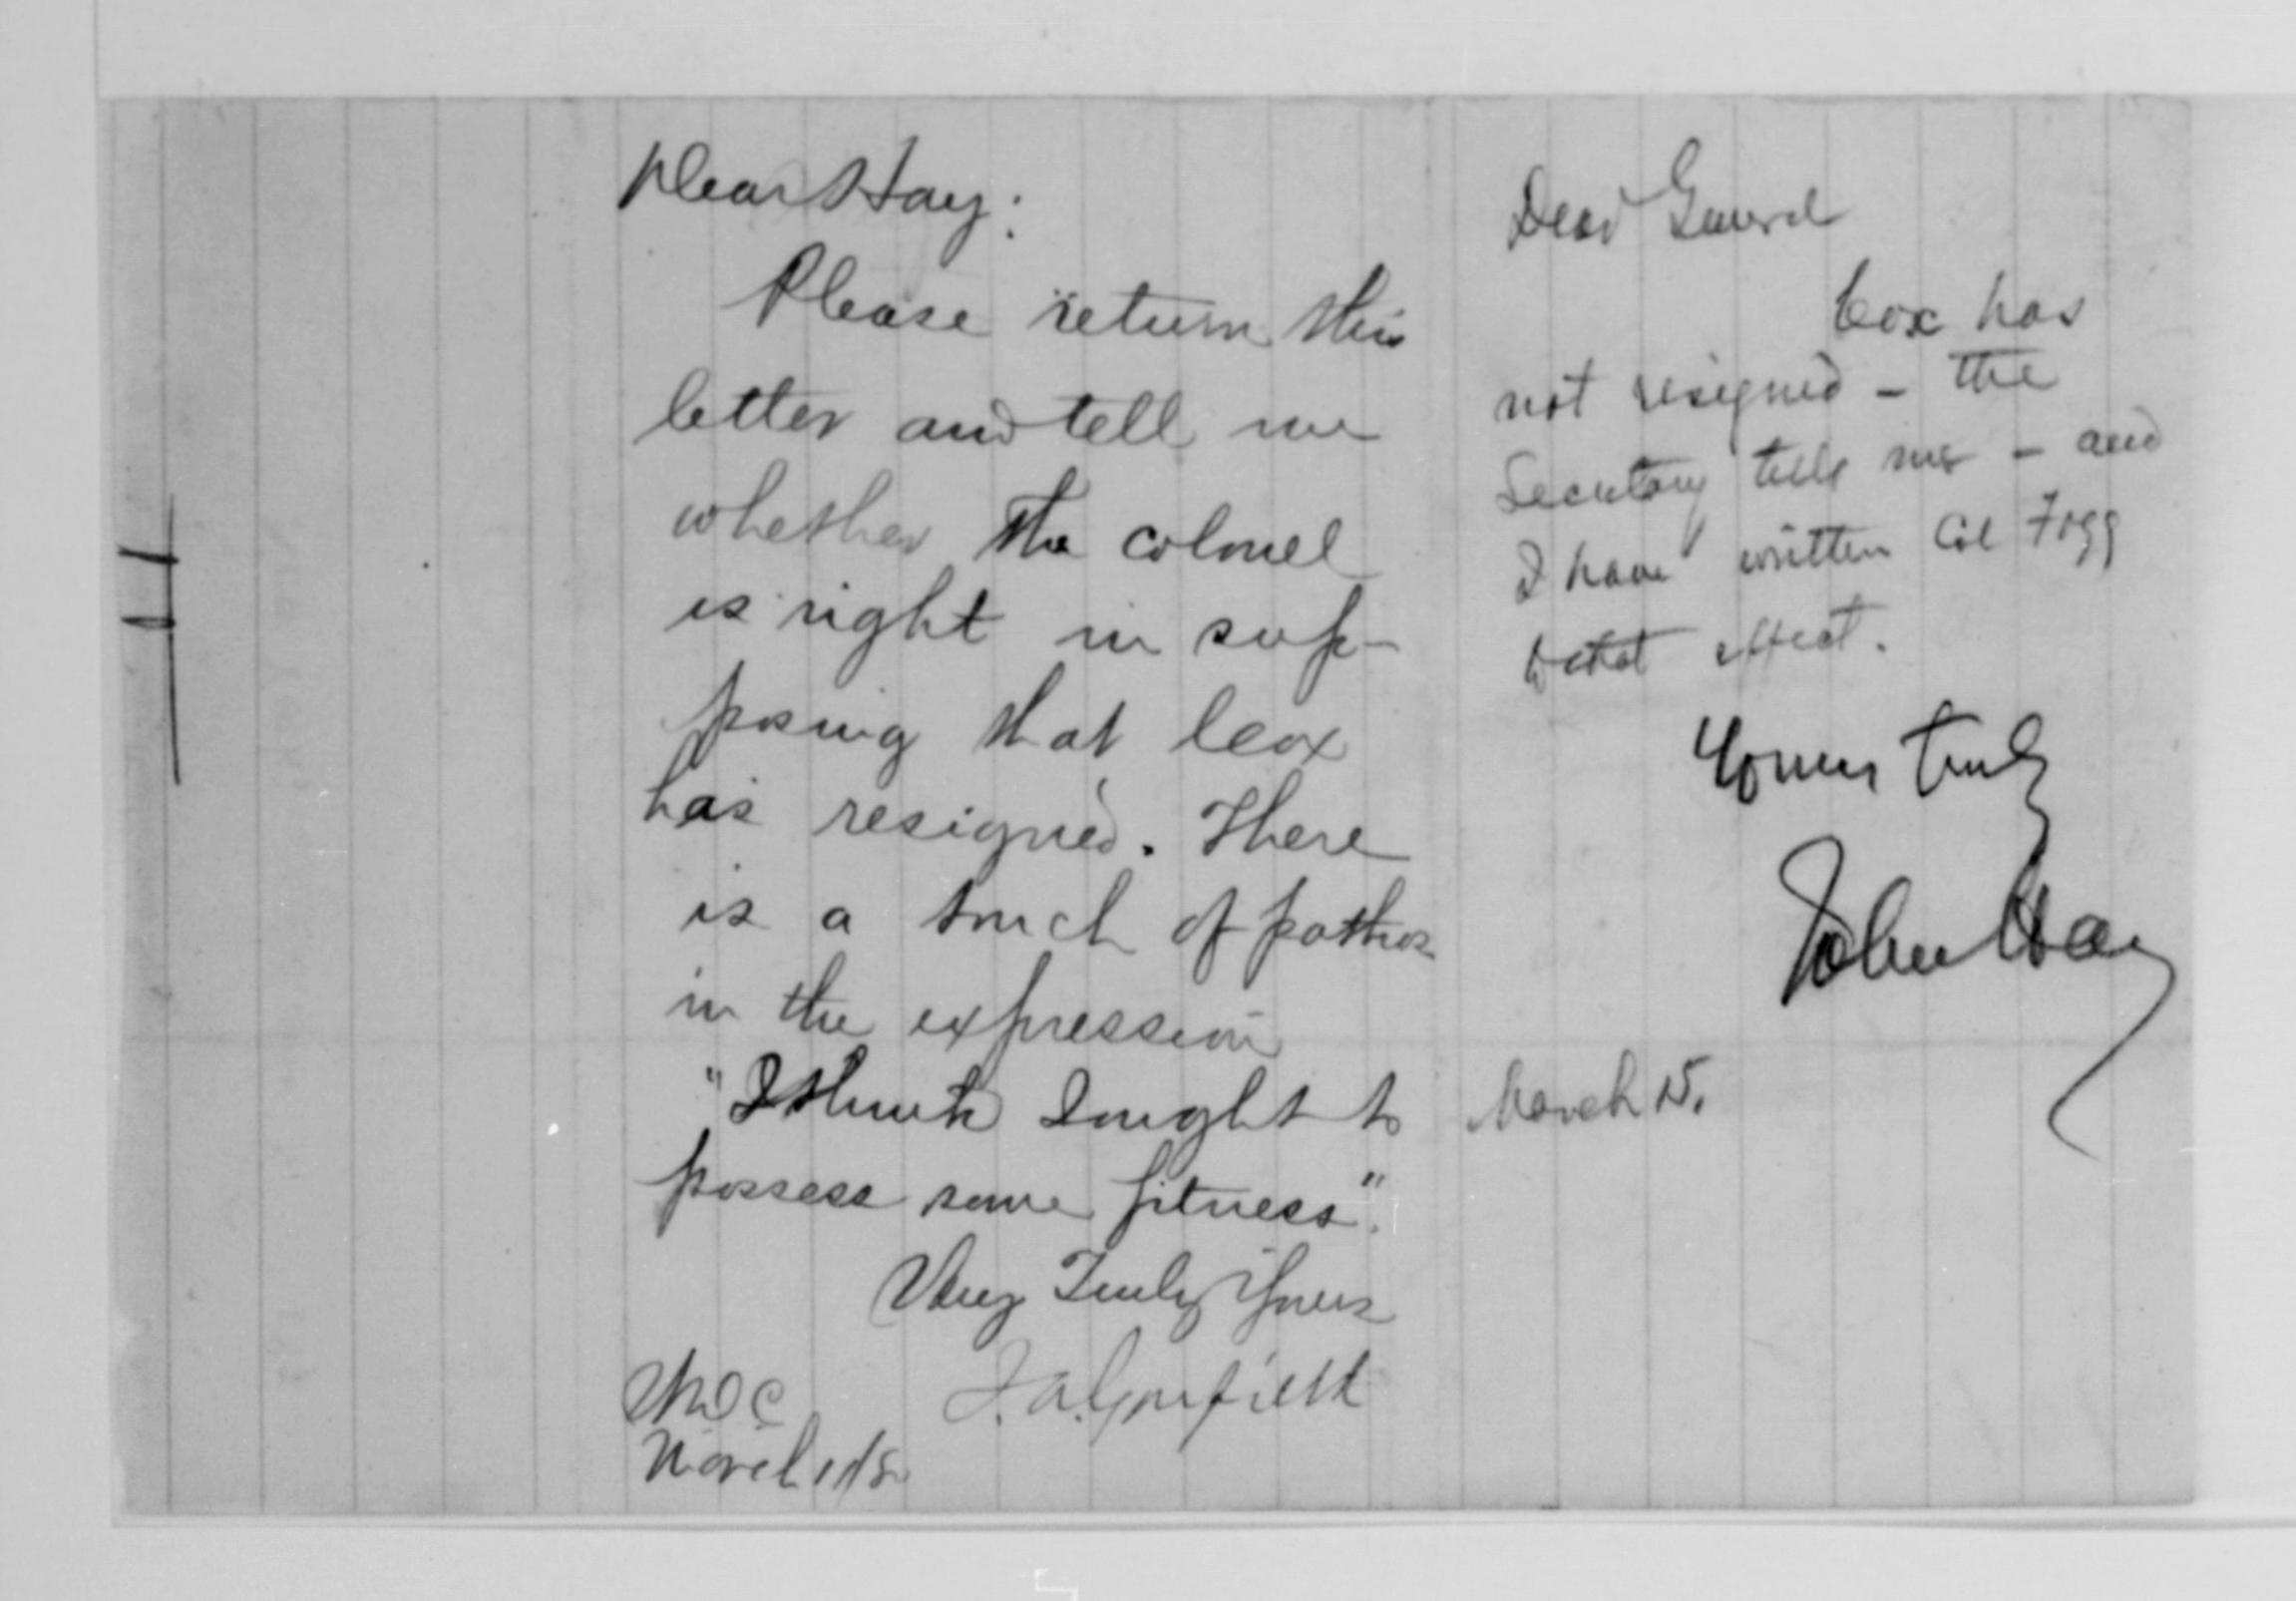 Dear Hay:
Please return this
letter and tell me
whether the colonel
is right in sup-
posing that Cox
has resigned. There
is a touch of pathos
in the expression
"I think I ought to
possess some fitness".
Very Truly Yours
J. A. Garfield
March 15
Dear General
Cox has
not resigned - the
Secretary tells me - and
I have written Col Fogg
to that effect.
Yours truly
John Hay
March 15.